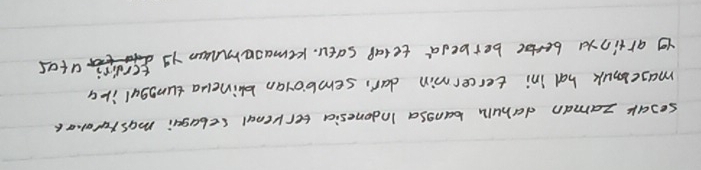 sejak zaman dahulu bangsa Indonesia terkenal sebagai masyarakat
majemuk hal ini tercermin dari semboyan bhineka tunggal ika
yg artinya berbeda tetap satu. kemajemukan yg terdiri atas